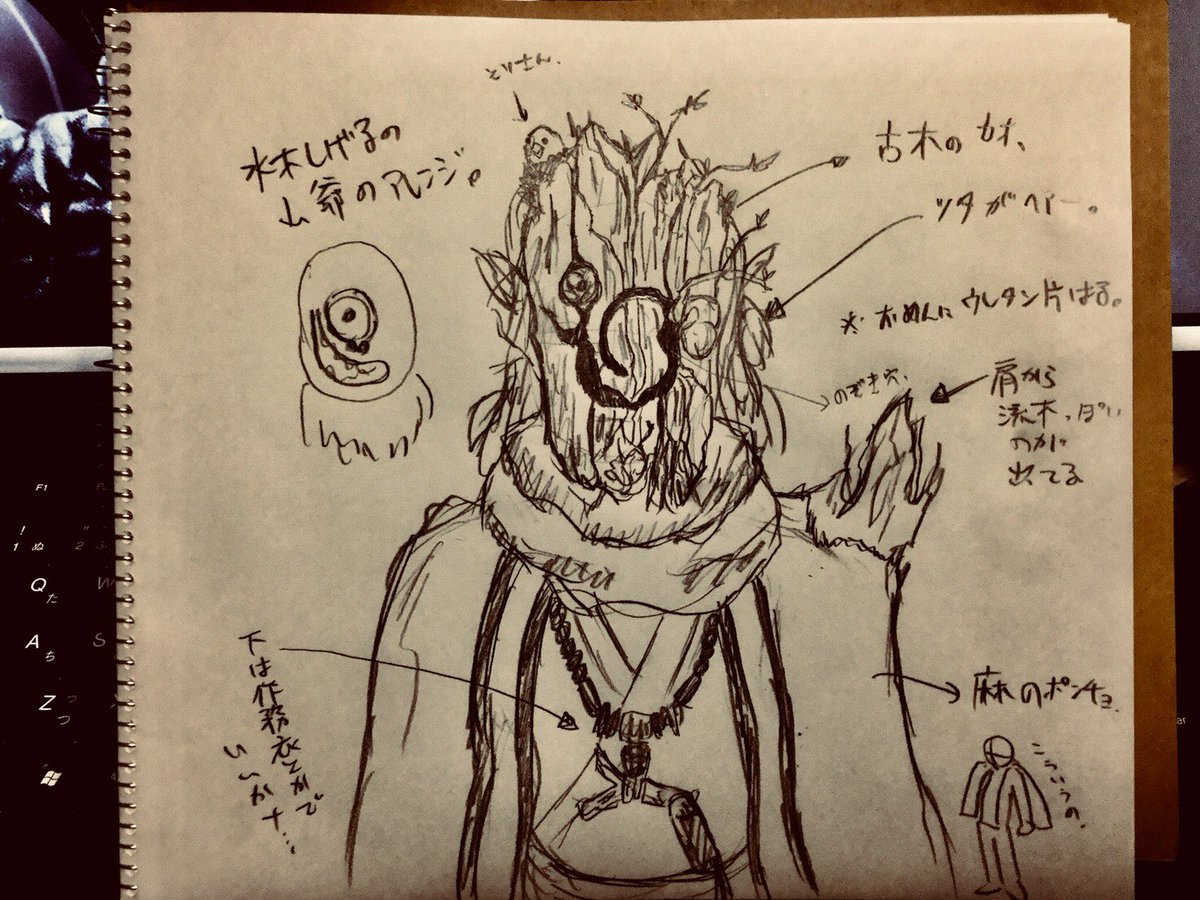 とりさん.
水木しげるの
山爺のアレンジ。
古木のカオ、
ツタがヘアー。
※ おめんにウレタン片はる。
のぞき穴、
肩から
流木っぽい
のが
出てる
下は作務衣とかで
いいかナ…
麻のポンチョ.
こういうの.
F1
!
1 ぬ
"
2 ふ
Q
た
W
A
ち
S
Z
っ
つ